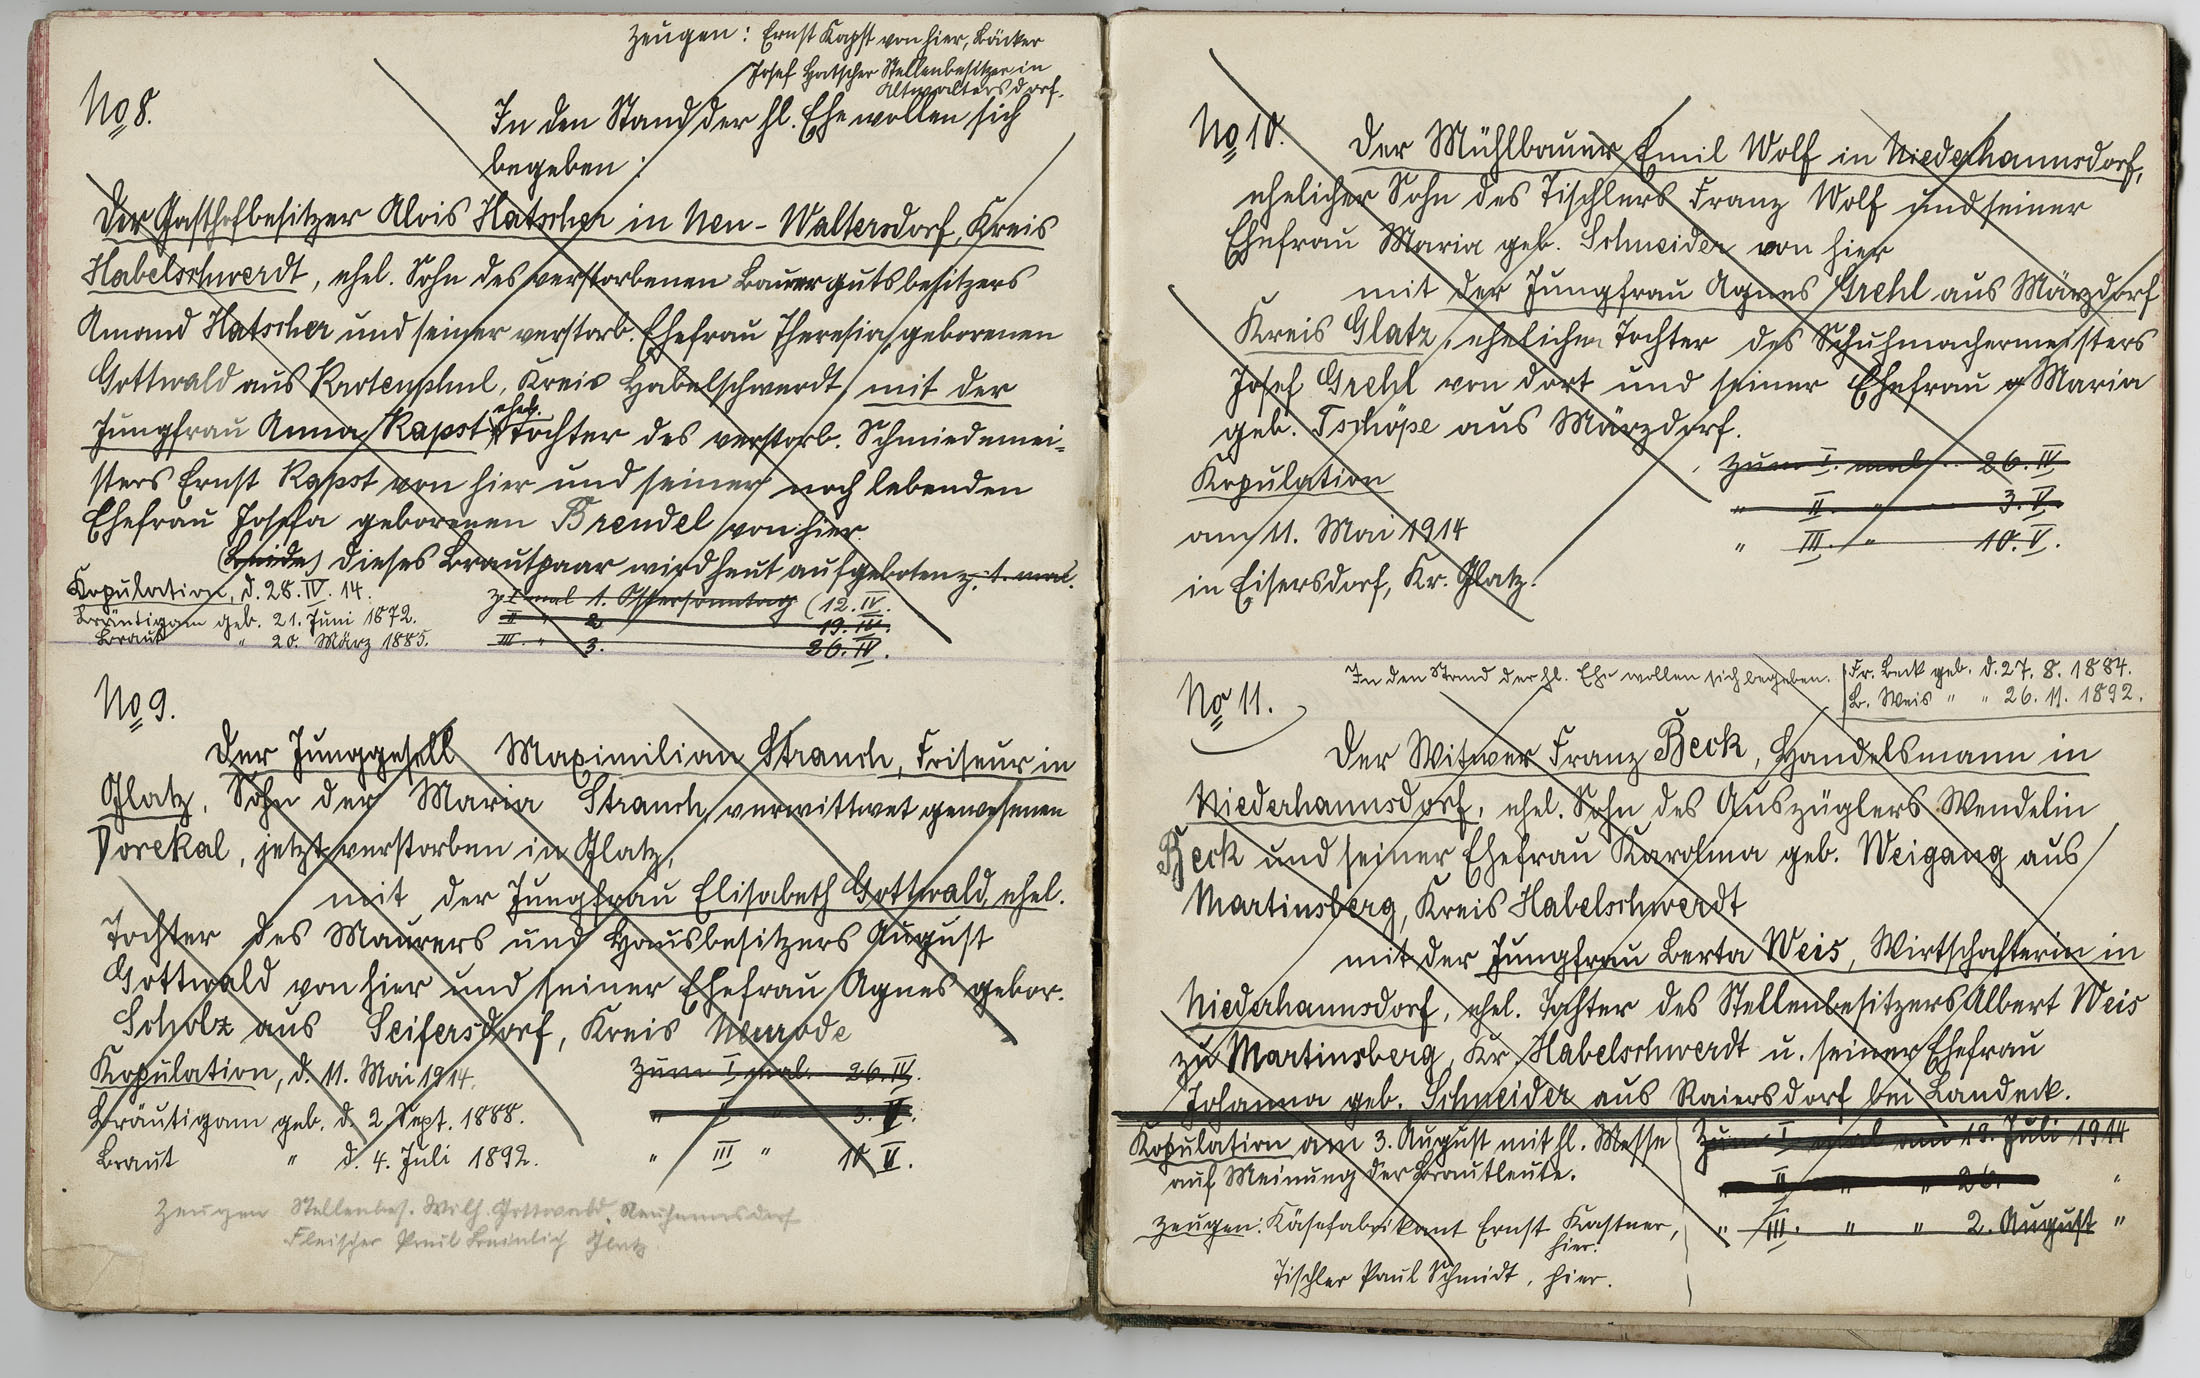 Zeugen: Ernst Kapst von hier, Bäcker
Josef Hatscher Stellenbesitzer in
Altwaltersdorf.
No 8.
In den Stand der hl. Ehe wollen sich
begeben:
Der Gasthofbesitzer Alois Hatscher in Neu-Waltersdorf, Kreis
Habelschwerdt, ehel. Sohn des verstorbenen Bauergutsbesitzers
Amand Hatscher und seiner verstorb. Ehefrau Theresia geborenen
Gottwald aus Krotenpfuhl, Kreis Habelschwerdt, mit der
Jungfrau Anna Kapst, ehel. Tochter des verstorb. Schmiedemei-
sters Ernst Kapst von hier und seiner noch lebenden
Ehefrau Josefa geborenen Brendel von hier.
(Beide) dieses Brautpaar wird heut aufgeboten z. 1. mal.
Kopulation, d. 28. IV. 14.
z. I mal 1. Ostersonntag (12. IV.
Bräutigam geb. 21. Juni 1872.
II " 2. 19. IV.
Braut " 20. März 1885.
III. " 3. 26. IV.
No 9.
Der Junggesell Maximilian Strauch, Friseur in
Glatz, Sohn der Maria Strauch, verwittwet gewesenen
Dorekal, jetzt verstorben in Glatz,
mit der Jungfrau Elisabeth Gottwald, ehel.
Tochter des Maurers und Hausbesitzers August
Gottwald von hier und seiner Ehefrau Agnes gebor.
Scholz aus Seifersdorf, Kreis Neurode
Kopulation, d. 11. Mai 1914.
Zum I mal. 26. IV.
Bräutigam geb. d. 2. Sept. 1888.
" II " 3. V.
Braut " d. 4. Juli 1892.
" III " 10 V.
Zeugen Stellenbes. Wilh. Gottwald, Neuhannsdorf
Fleischer Paul Glatz.
No 10.
Der Mühlbauer Emil Wolf in Niederhannsdorf,
ehelicher Sohn des Tischlers Franz Wolf und seiner
Ehefrau Maria geb. Schneider von hier
mit der Jungfrau Agnes Grehl aus Märzdorf
Kreis Glatz, ehelichen Tochter des Schuhmachermeisters
Josef Grehl von dort und seiner Ehefrau Maria
geb. Tschöpe aus Märzdorf.
Kopulation
zum I. mal 26. IV
" II. " 3. V.
am 11. Mai 1914
" III. " 10. V.
in Eisersdorf, Kr. Glatz.
No 11.
In den Stand der hl. Ehe wollen sich begeben.
Fr. Beck geb. d. 27. 8. 1884.
B. Weis " " 26. 11. 1892.
Der Witwer Franz Beck, Handelsmann in
Niederhannsdorf, ehel. Sohn des Auszüglers Wendelin
Beck und seiner Ehefrau Karolina geb. Weigang aus
Martinsberg, Kreis Habelschwerdt
mit der Jungfrau Berta Weis, Wirtschafterin in
Niederhannsdorf, ehel. Tochter des Stellenbesitzers Albert Weis
zu Martinsberg, Kr. Habelschwerdt u. seiner Ehefrau
Johanna geb. Schneider aus Raiersdorf bei Landeck.
Kopulation am 3. August mit hl. Messe
auf Meinung der Brautleute.
Zum I mal am 19. Juli 1914
" II " " 26. "
" III. " " 2. August "
Zeugen: Käsefabrikant Ernst Kastner,
hier.
Tischler Paul Schmidt, hier.